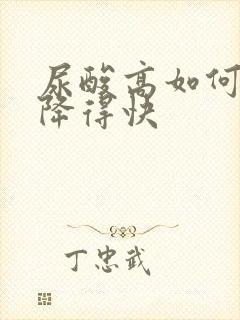 尿酸高如何
降得快
丁忠武